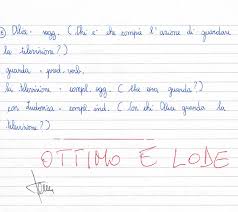 Alice = sogg. (Chi è che compie l'azione di guardare
la televisione?)
guarda = pred. verb.
la televisione = compl. ogg. (che cosa guarda?)
con Ludovica = compl. ind. (con chi Alice guarda la
televisione?)
OTTIMO E LODE